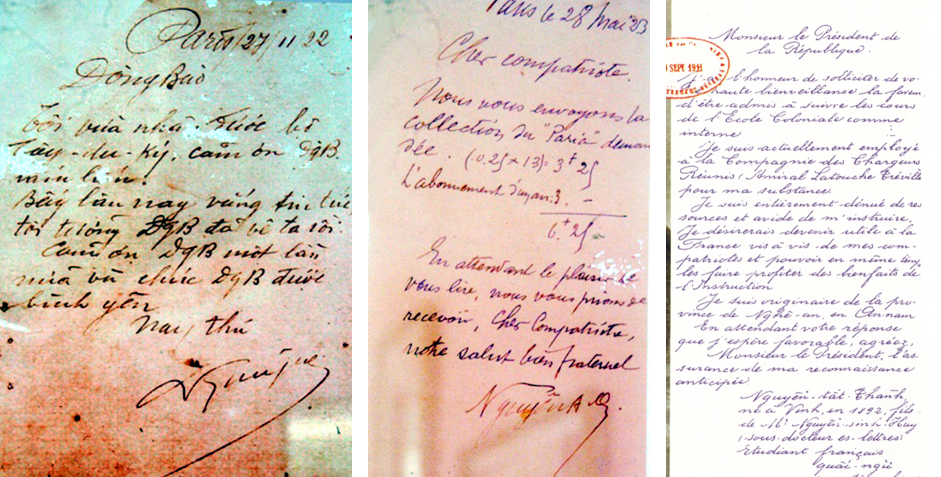 Paris, 27, 11 22
Đồng Bào
Tôi vừa nhận được bộ
Tây-du-Ký, cảm ơn ĐgB.
vạn lần!
Bấy lâu nay vắng tin tức
tôi tưởng ĐgB đã về ta rồi.
Cảm ơn ĐgB một lần
nữa và chúc ĐgB được
bình yên
Nay, thư
Nguyễn
Paris le 28 Mai 23
Cher compatriote.
Nous vous envoyons la
collection du "Paria" deman
dée. (0.25 x 13) = 3f 25
L'abonnement d'un an: 3. -
6f 25
En attendant le plaisir de
vous lire, nous vous prions de
recevoir, Cher Compatriote,
notre salut bien fraternel
Nguyễn A.Q.
Monsieur le Président de
la République.
SEPT 1911
l'honneur de solliciter de vo-
haute bienveillance la faveur
d'être admis à suivre les cours
de l'Ecole Coloniale comme
interne
Je suis actuellement employé
à la Compagnie des Chargeurs
Réunis (Amiral Latouche Tréville
pour ma substance.
Je suis entièrement dénué de res
sources et avide de m'instruire.
Je désirerais devenir utile à la
France vis à vis de mes com-
patriotes et pouvoir en même temps
les faire profiter des bienfaits de
l'Instruction
Je suis originaire de la pro-
vince de Nghê-an, en Annam
En attendant votre réponse
que j'espère favorable, agréez,
Monsieur le Président, l'as-
surance de ma reconnaissance
anticipée
Nguyễn-tất-Thành,
né à Vinh, en 1892, fils
de Mr Nguyễn-sinh-Huy
(sous-docteur ès-lettres)
Etudiant français
quốc-ngữ